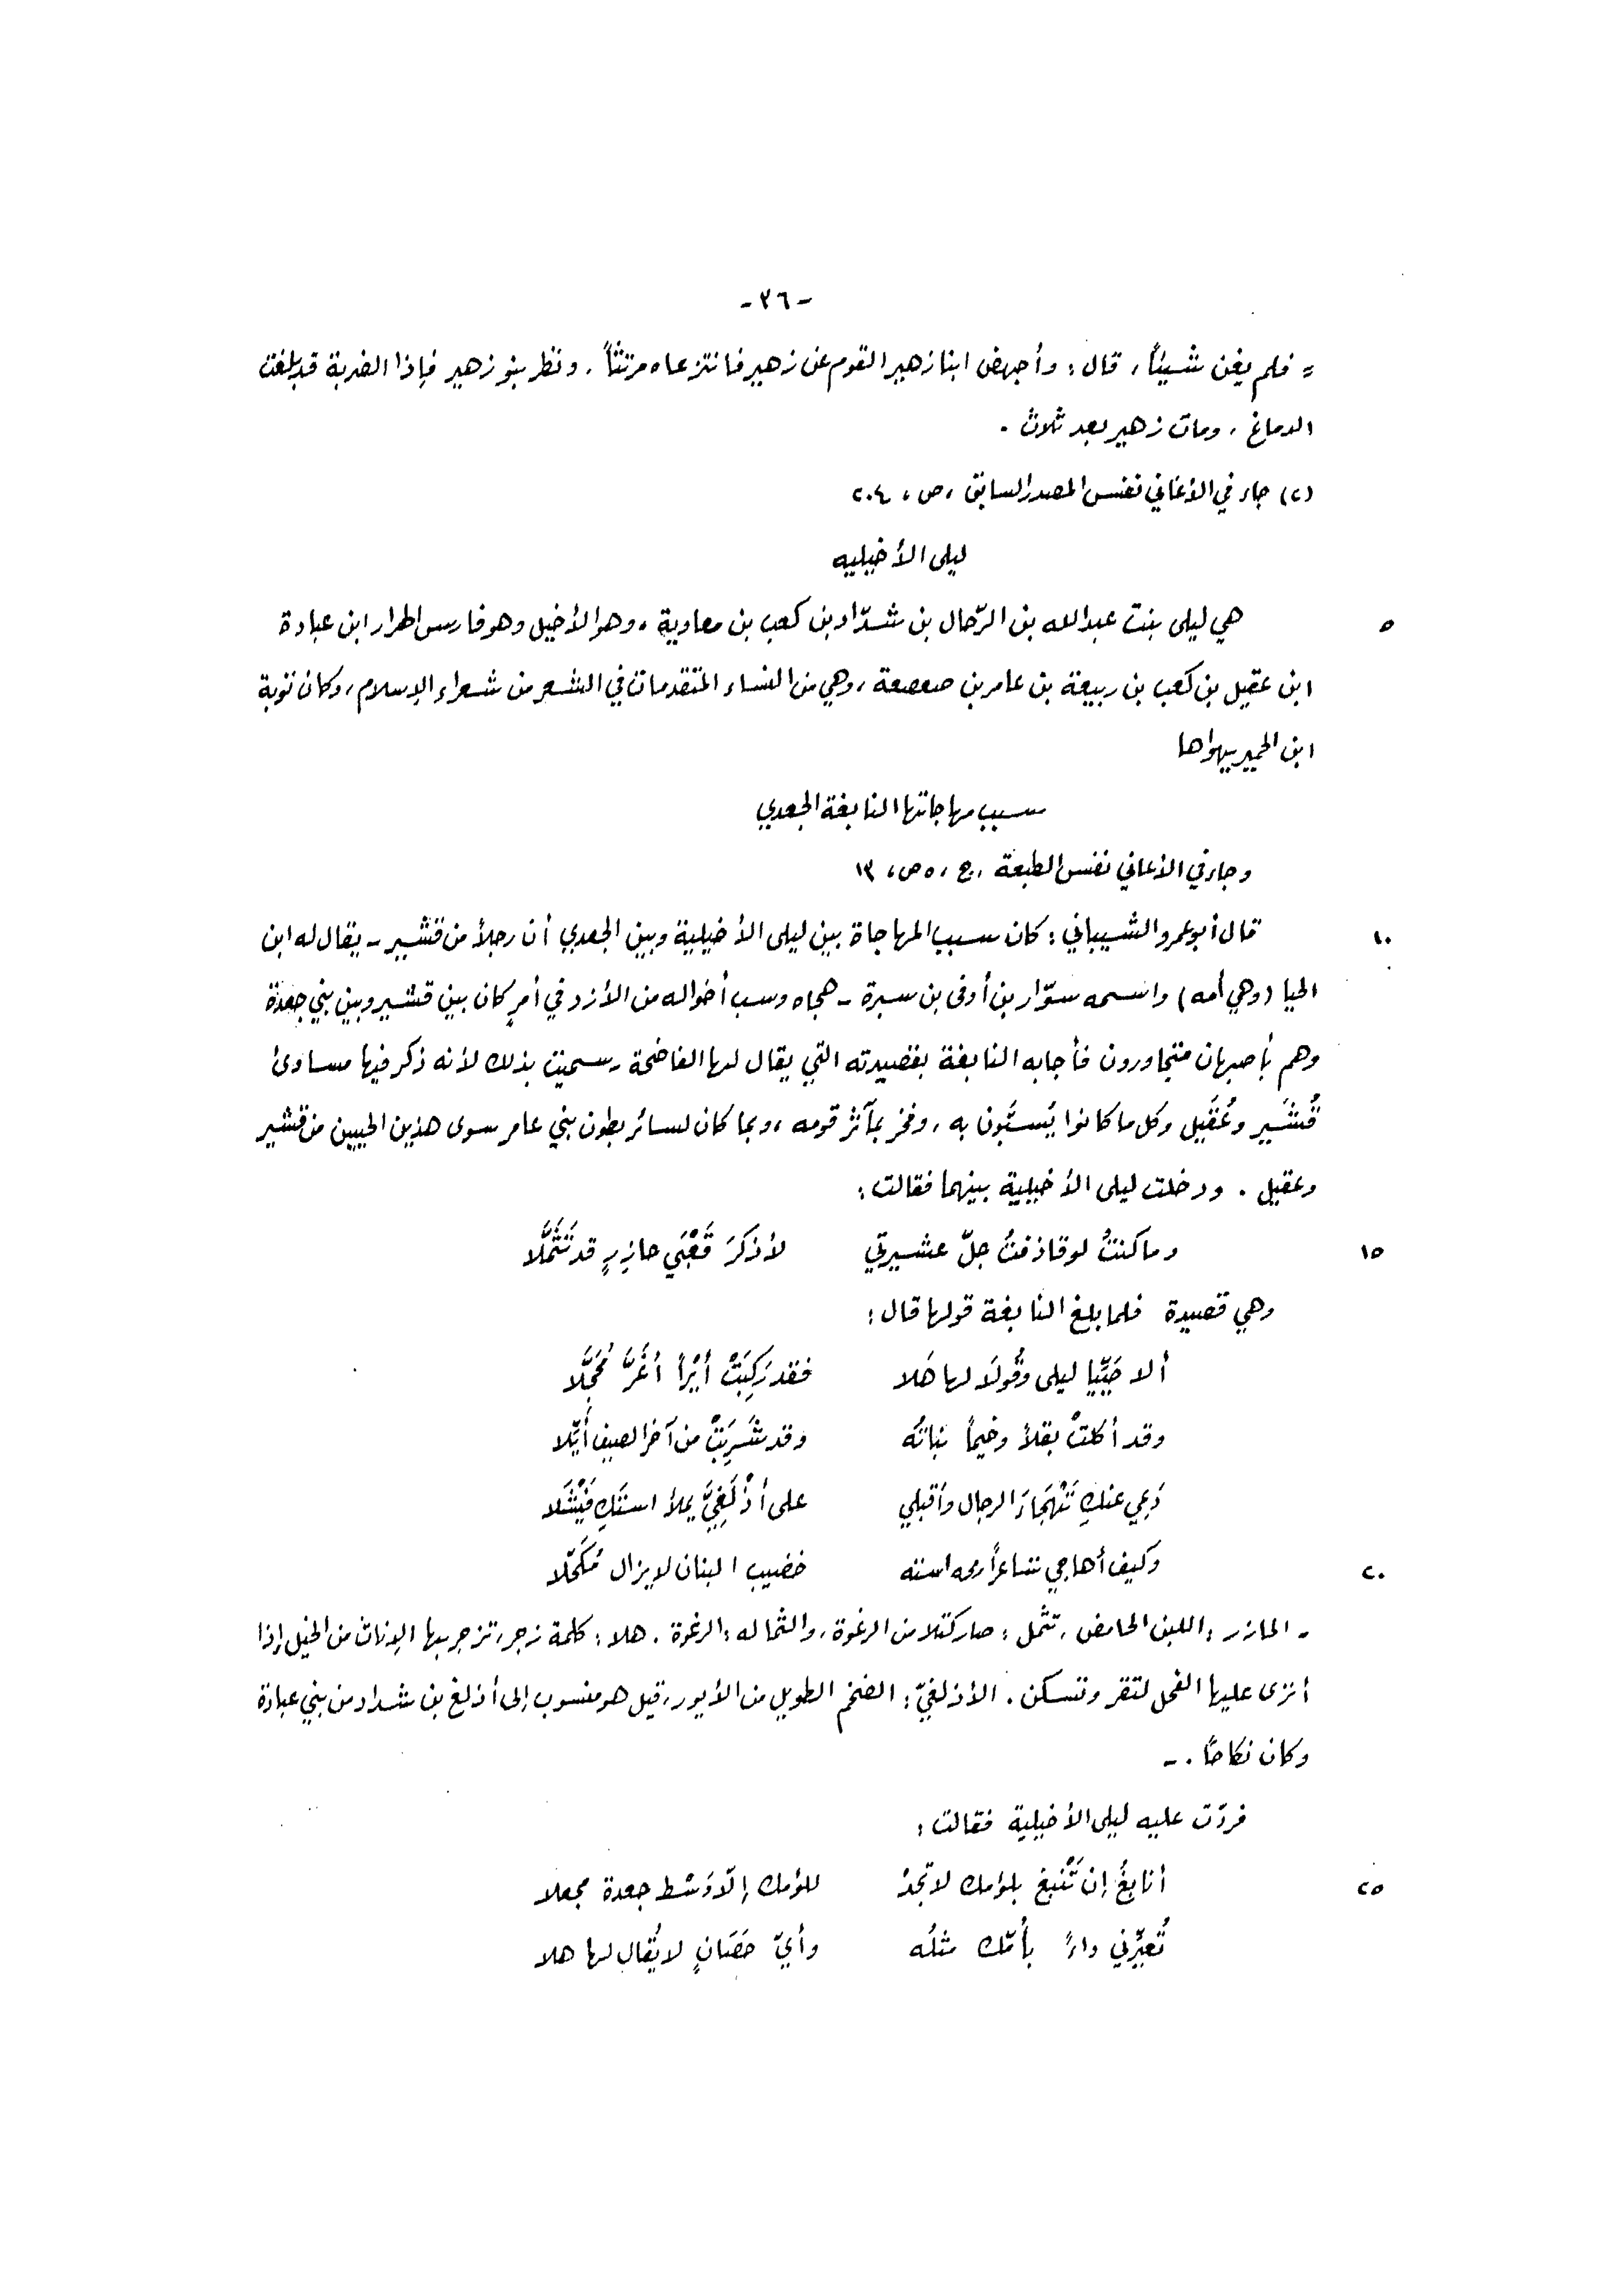 -٣٦-
= فلم يغن شيئاً، قال: وأجهض ابنا زهير القوم عن زهير فانتزعاه مرتثاً، ونظر بنو زهير فإذا الضربة قد بلغت
الدماغ، ومات زهير بعد ثلاث.
(٢) جاء في الأغاني نفس المصدر السابق، ص، ٢٠٤
ليلى الأخيليه
٥ هي ليلى بنت عبدالله بن الرّحال بن شدّاد بن كعب بن معاوية، وهو الأخيل وهو فارس الهرار ابن عبادة
ابن عقيل بن كعب بن ربيعة بن عامر بن صعصعة، وهي من النساء المتقدمات في الشعر من شعراء الإسلام، وكان توبة
ابن الحمير يهواها
سبب مهاجاتها النابغة الجعدي
وجاء في الأغاني نفس الطبعة، ج، ٥ ص، ١٣
١٠ قال أبو عمرو الشيباني: كان سبب المهاجاة بين ليلى الأخيلية وبين الجعدي أن رجلاً من قشير - يقال له ابن
الحيا (وهي أمه) واسمه سوّار بن أوفى بن سبرة - هجاه وسب أخواله من الأزد في أمرٍ كان بين قشير وبين بني جعدة
وهم بأصبهان متجاورون فأجابه النابغة بقصيدته التي يقال لها الفاضحة - سميت بذلك لأنه ذكر فيها مساوئ
قُشَير وعُقَيل وكل ما كانوا يُسبّون به، وفخر بمآثر قومه، وبما كان لسائر بطون بني عامر سوى هذين الحيين من قشير
وعقيل. ودخلت ليلى الأخيلية بينهما فقالت:
١٥ وما كنتُ لو قاذفتُ جلّ عشيرتي لأذكرَ قَعْبَي حازِرٍ قد تَثَمَّلا
وهي قصيدة فلما بلغ النابغة قولها قال:
ألا حَيِّيا ليلى وقُولَا لها هَلا فقد رَكِبَتْ أَيْراً أغَرَّ مُحَجَّلا
وقد أكلتْ بقلاً وخيماً نباتُه وقد شَرِبَتْ من آخر الصيف أُيَّلا
دَعِي عنكِ تَهْجَاءَ الرجال وأقبلي على أذْلَغِيٍّ يملأ استَكِ فَيْشَلا
٢٠ وكيف أهاجي شاعراً رمحه استه خضيب البنان لا يزال مُكَحّلا
- الحازر: اللبن الحامض، تثّمل: صار كتلا من الرغوة، والثماله: الرغوة. هلا: كلمة زجر، تزجر بها الإناث من الخيل إذا
أنزى عليها الفحل لتقر وتسكن. الأذلغيّ: الضخم الطويل من الأيور، قيل هو منسوب إلى أذلغ بن شداد من بني عبادة
وكان نكاحاً. -
فردّت عليه ليلى الأخيلية فقالت:
٢٥ أنابِغُ إن تَنْبغ بلؤمك لا تجدْ للؤمك إلّا وَسْط جعدة مجعلا
تُعيِّرني داءً بأُمّك مثلُه وأيّ حَصَانٍ لا يُقال لها هلا